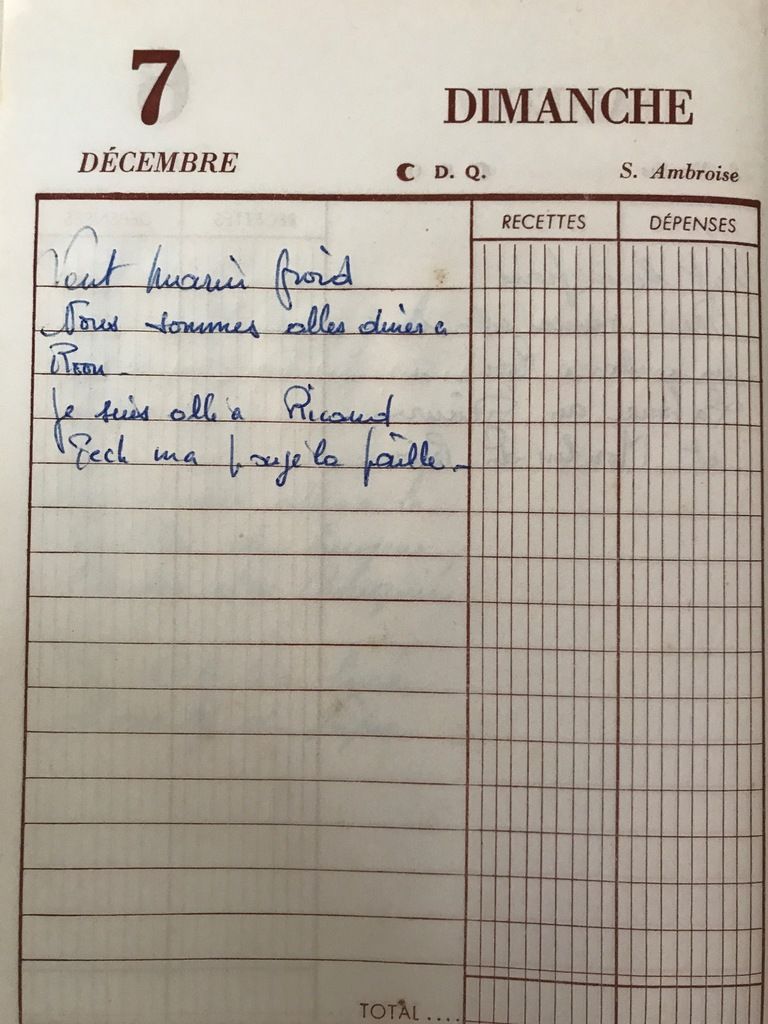 7
DIMANCHE
DÉCEMBRE
D. Q.
S. Ambroise
RECETTES
DÉPENSES
Vent marin froid
Nous sommes alles diner a
Je suis allé a Ricaud
ma la paille.
TOTAL ....